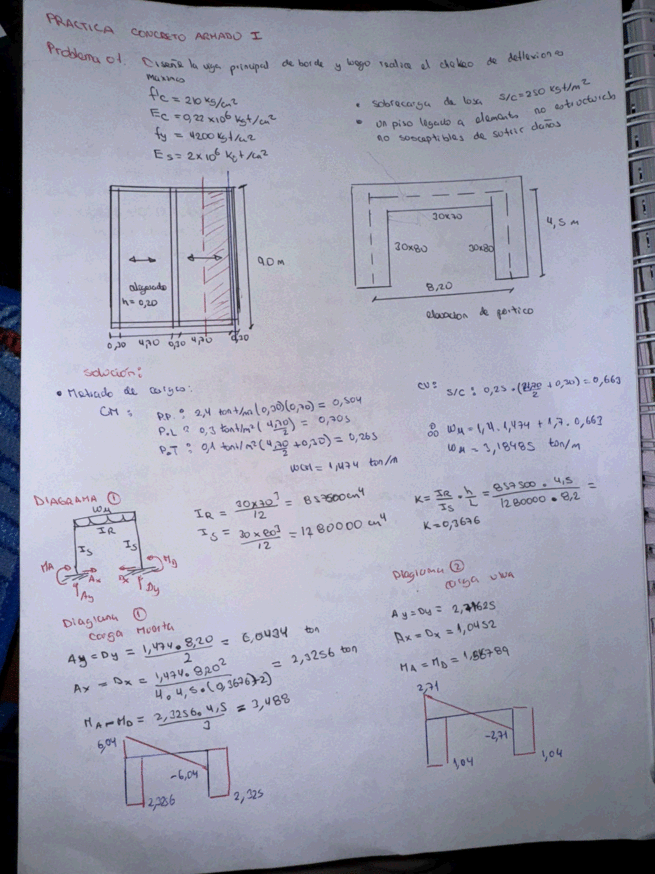 PRACTICA CONCRETO ARMADO I
Problema 01. Diseña la viga principal de borde y luego realice el chekeo de deflexiones
maximo
f'c = 210 kg/cm²
fy = 4200 kgf/cm²
Es = 2x10⁶ kgf/cm²
• sobrecarga de losa s/c = 250 kgf/m²
• un piso ligado a elementos no estructurales
no susceptibles de sufrir daños
aligerado
h = 0,20
9.0 m
0,30 4,70 0,30 4,70 0,30
30x70
30x80
30x80
4,5 m
8,20
elevacion de portico
Solución:
• Metrado de cargas:
CM: P.P: 2,4 ton/m³ (0,30)(0,70) = 0,504
P.L: 0,3 tonf/m² (4,70/2) = 0,705
P.T: 0,1 tonf/m² (4,70/2 + 0,30) = 0,265
WCM = 1,474 ton/m
CV: s/c: 0,25 · (4,70/2 + 0,30) = 0,663
∴ Wu = 1,4 . 1,474 + 1,7 . 0,663
Wu = 3,18485 ton/m
DIAGRAMA ①
Wu
IR
Is
Is
MA
Ax
Ay
Dx
Dy
IR = 30x70³/12 = 857500 cm⁴
Is = 30x80³/12 = 1280000 cm⁴
K = IR/Is · h/L = 857500 · 4,5 / 1280000 · 8,2 =
K = 0,3676
Diagrama ①
carga muerta
Ay = Dy = 1,474 · 8,20 / 2 = 6,0434 ton
Ax = Dx = 1,474 · 8,20² / 4 · 4,5 · (0,3676+2) = 2,3256 ton
MA = MD = 2,3256 · 4,5 / 3 = 3,488
6,04
-6,04
2,3256
2,325
Diagrama ②
carga viva
Ay = Dy = 2,71625
Ax = Dx = 1,0452
2,71
-2,71
1,04
1,04